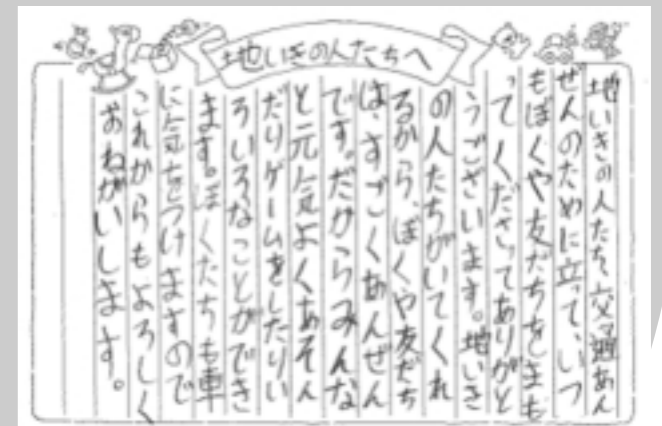 地いきの人たちへ
地いきの人たち、交通あん
ぜんのために立って、いつ
もぼくや友だちをまも
ってくださってありがと
うございます。地いき
の人たちがいてくれ
るから、ぼくや友だち
は、すごくあんぜん
です。だからみんな
と元気よくあそん
だりゲームをしたりい
ろいろなことができ
ます。ぼくたちも車
に気をつけますので
これからもよろしく
おねがいします。